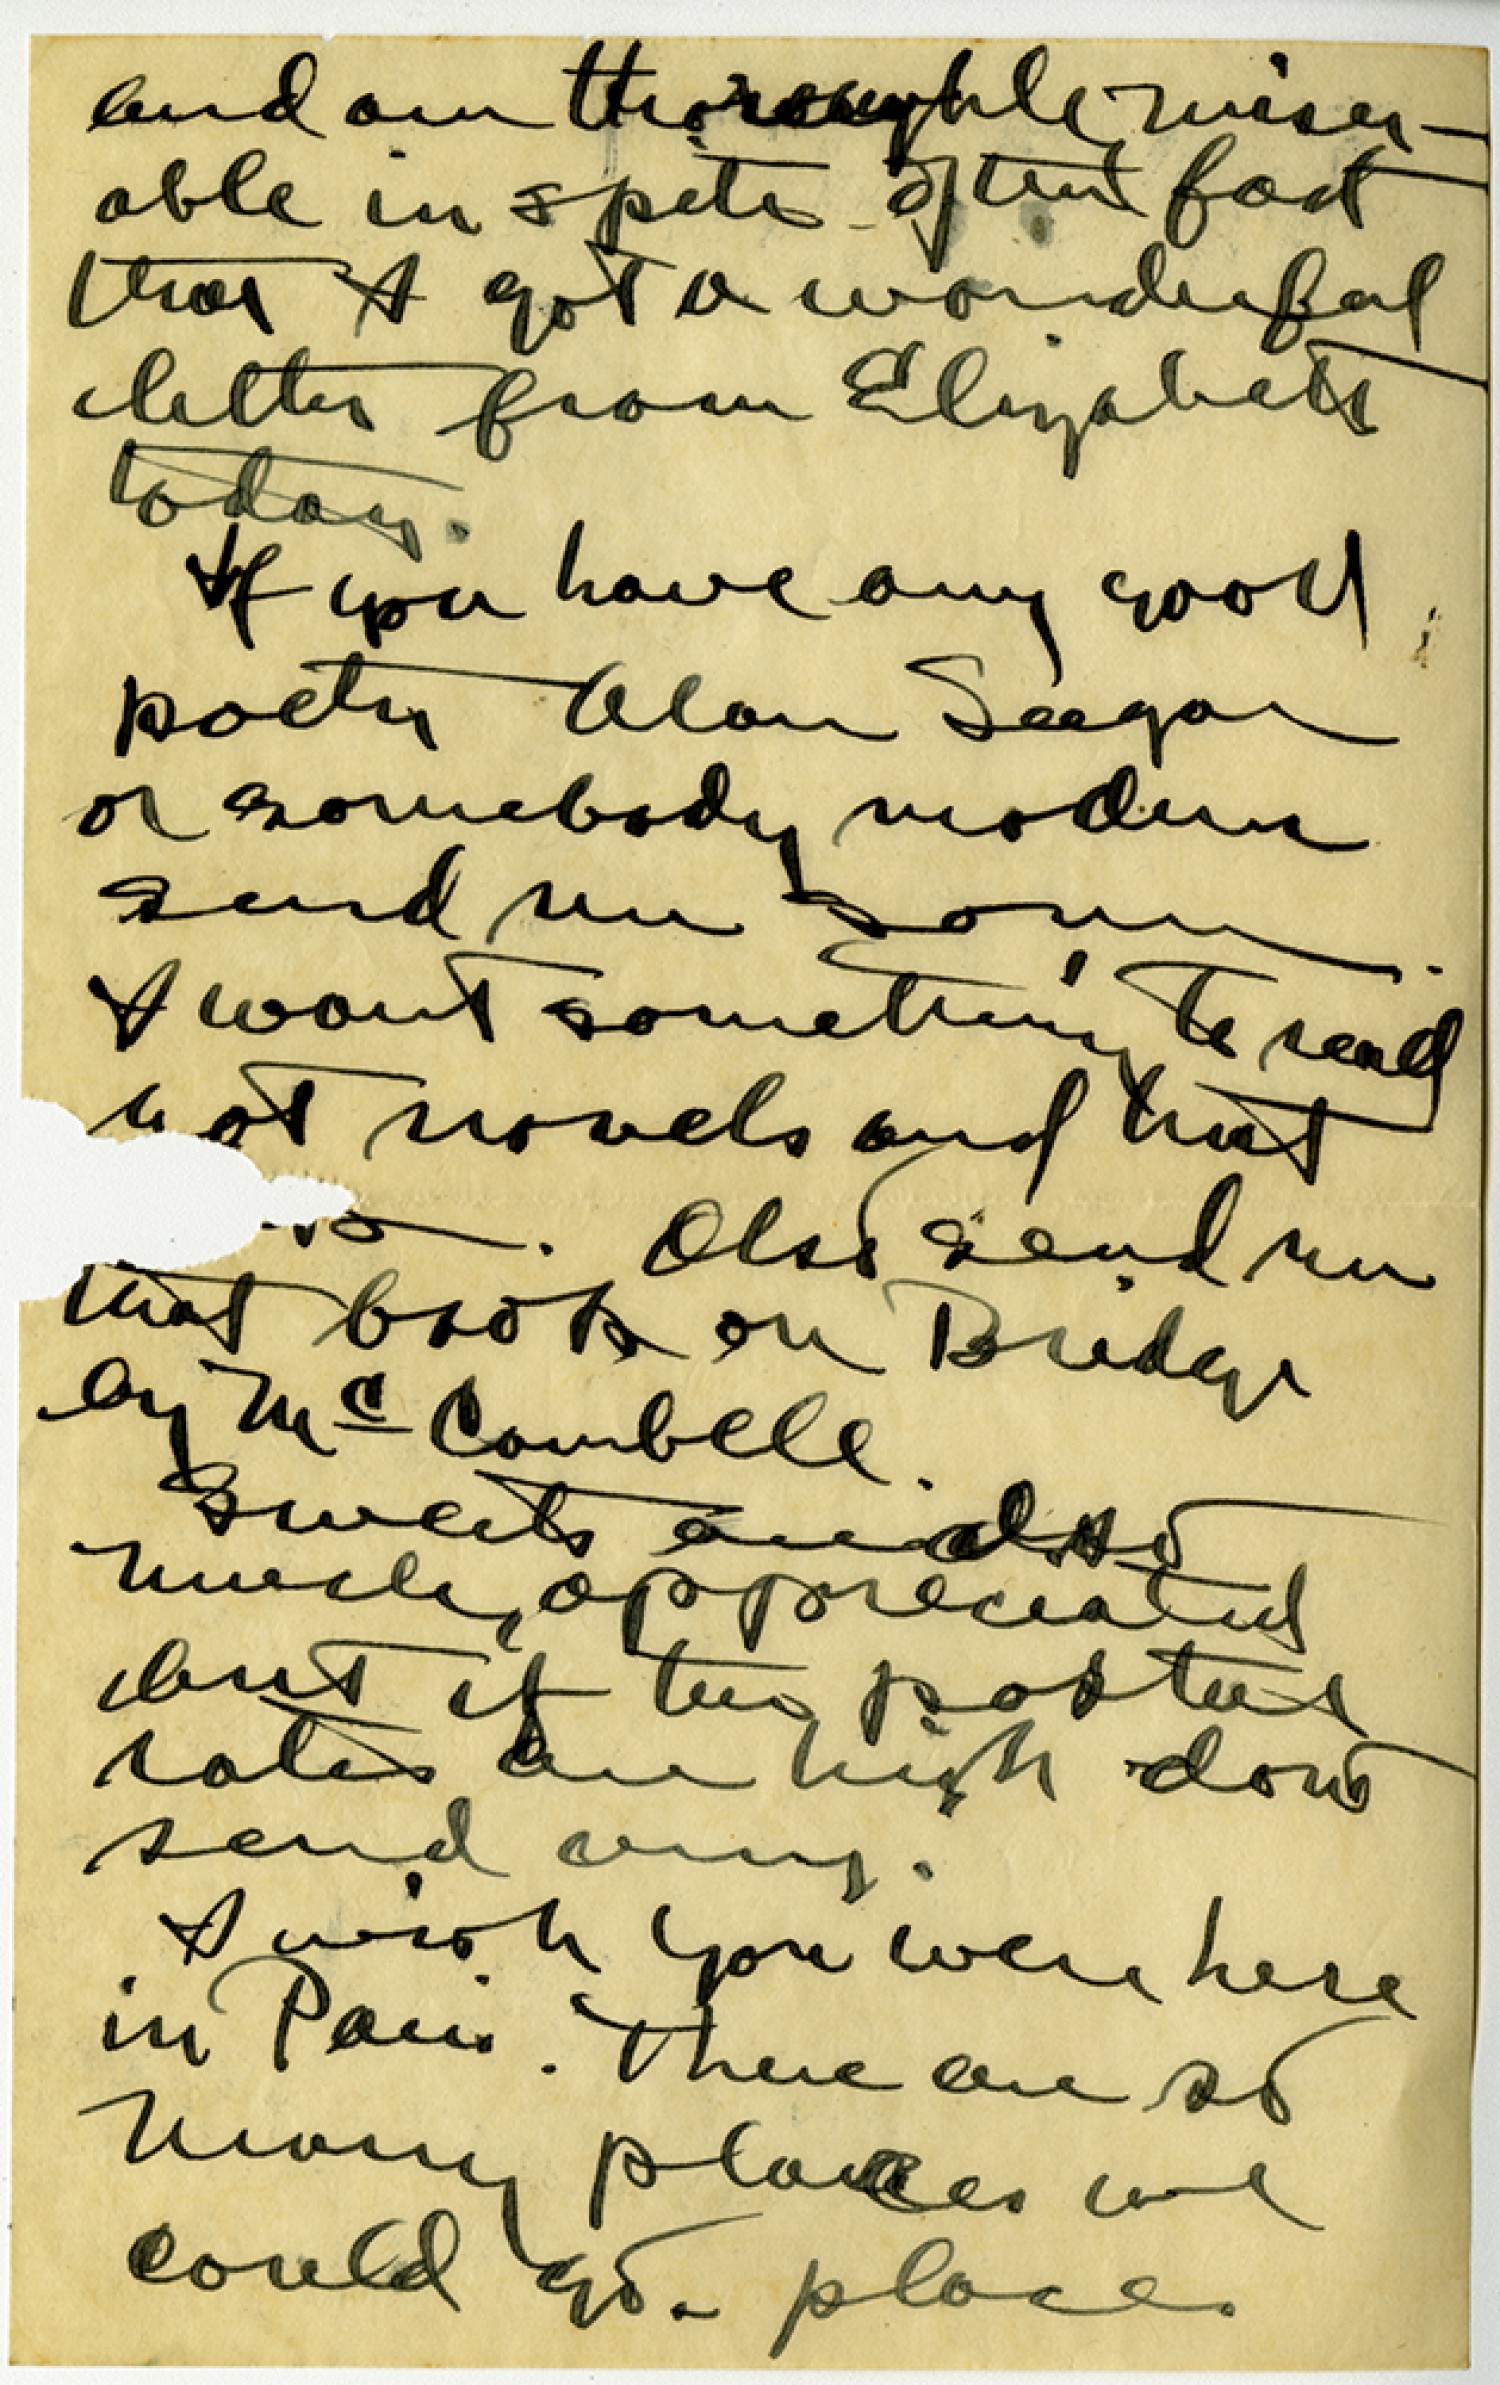 and am thoroughly miser-
able in spite of the fact
that I got a wonderful
letter from Elizabeth
today.
If you have any good
poetry Alan Seegar
or somebody modern
send me some.
I want something to read
not novels and that
Also send me
that book on Bridge
by Mc Cambell.
Sweets and so
much appreciated
but if the postal
rates are high dont
send any.
I wish you were here
in Paris. There are so
many places we
could go - place